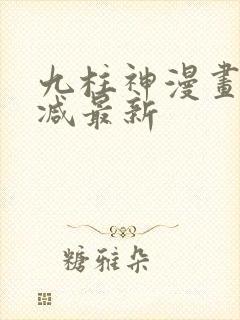 九柱神漫畫
减最新
糖雅朵